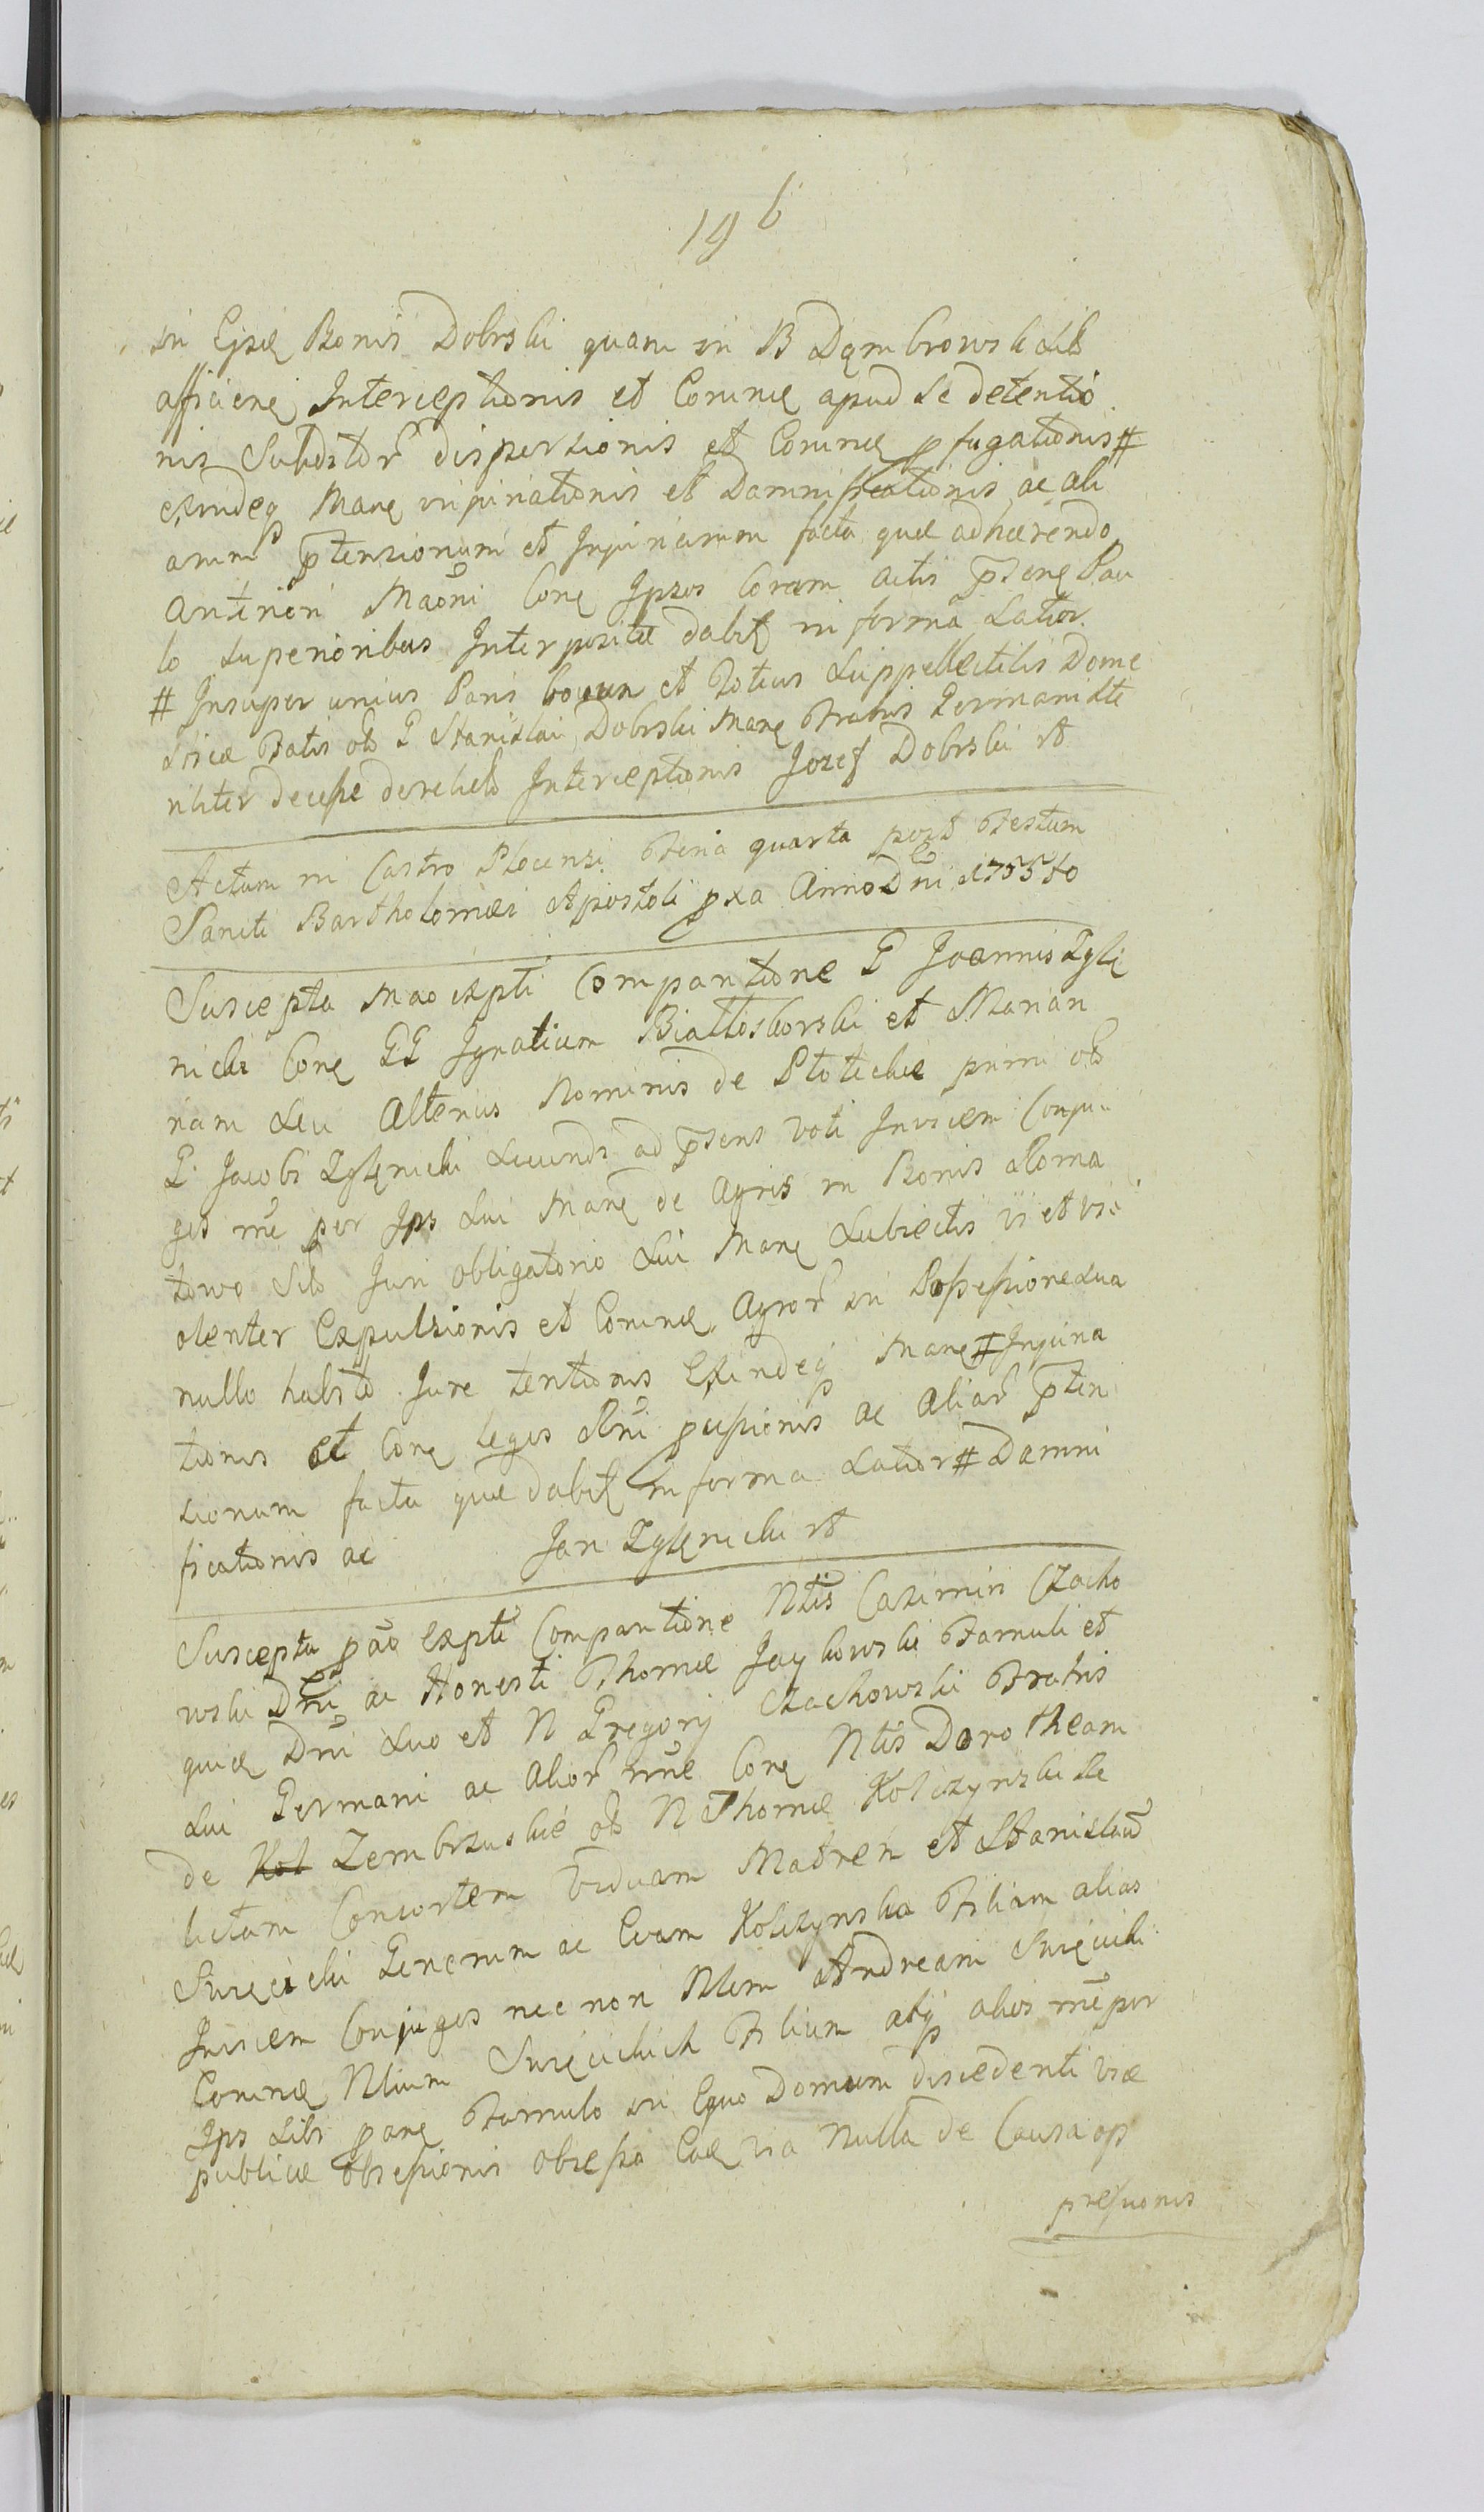 196
in Ejsd Bonis Dobrski quam in B Dąmbrowsk sib
afficien Interceptionis et Eorund apud se detentio
nis Subditor dispersionis et Eorund pfugationis #
exindeq Manę injuriationis et Damnificationis ac ali
arum ptensionum et Injuriarum facta quæ adhærendo
anteriori Maõni Conę Ipsos Coram actis psenę Pau
lo superioribus Interpositæ dabit in forma Latior
# Insuper unius Paris boum et Totius Suppellectilis Dome
sticæ Fatis ob G Stanislai Dobrski Manę Fratris Germani Ste
riliter decesse derelicto Interceptionis Jozef Dobrski st
Actum in Castro Plocensi Feria quarta post Festum
Sancti Bartholomæi Apostoli pxa Anno Dñi 1755to
Suscepta Mao expti Comparitione G Joannis Zglę
nicki Conę GG Ignatium Białłoskorski et Marian
nam seu alterius Nominis de Płotickie primi ob
G Jacobi Zglęnicki secundi ad psens voti Invicem Conju
ges rñe per Ips sui Manę de Agris in Bonis Roma
towo sibi Juri obligatorio sui Manę Subiectis vi et vio
olenter Expulsionis et Eorund Agror in Possessione sua
nullo habito Jure tentionis Exindeq Manę # Injuria
tionis et Conę leges Rñi pcessionis ac Aliar pten
sionum facta quæ dabit in forma Latior # Damni
ficationis ac Jan Zglęnicki st
Suscepta pão Expti Comparitione Ntis Casimiri Czacho
wski Dñi ac Honesti Thomæ Jaykowski Famuli et
quid Dñi suo et N Gregorij Czachowski Fratris
sui Germani ac Alior rñe Conę Ntis Dorotheam
de Kol Zembrzuskie ob N Thomæ Kolczynski Re
lictam Consortem viduam Matrem et Stanislaũ
Swięcicki Generum ac Evam Kolczynska Filiam alias
Invicem Conjuges nec non Ntem Andream Swięcicki
Eorund Ntium Swięcickich Filium atq alios rñe per
Ips sibi pane Famulo in Equo Domum discedenti viæ
publicæ obsessionis obsessa Ead via Nulla de Causa op
pressionis